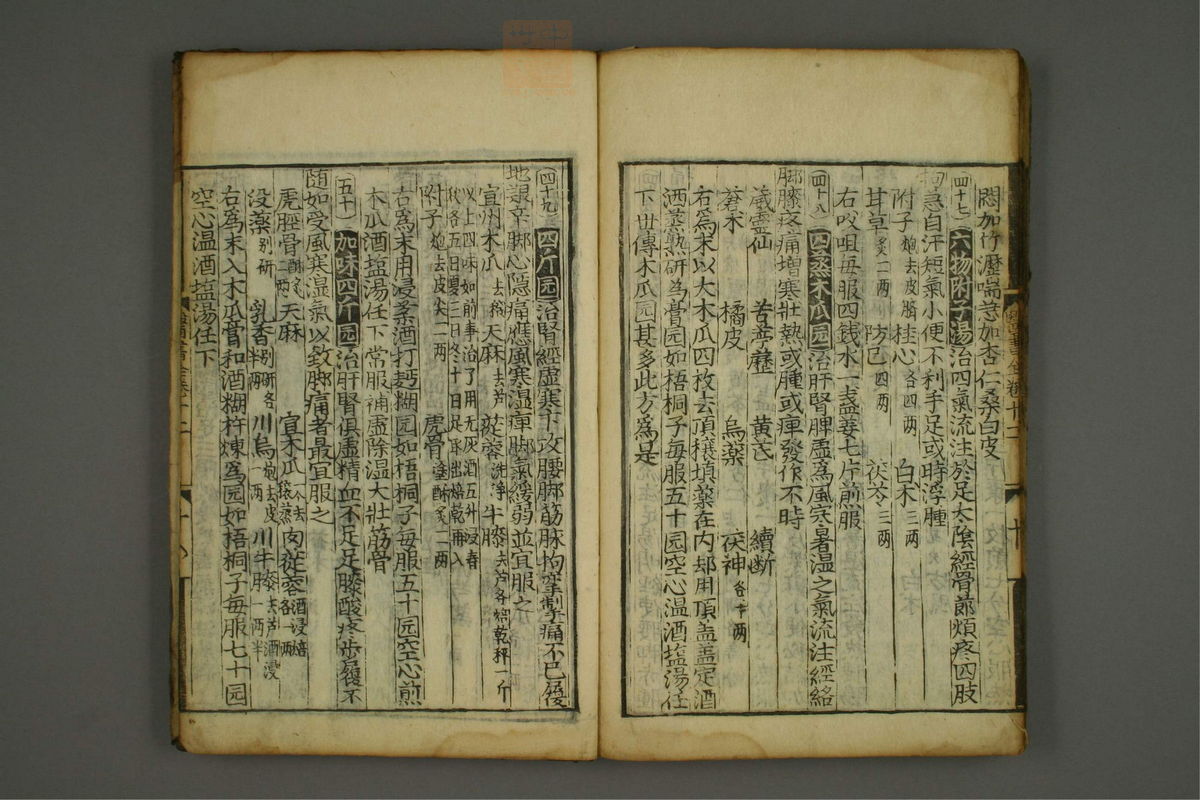 悶加竹瀝喘急加杏仁桑白皮
四十七 六物附子湯 治四氣流注於足太陰經骨節煩疼四肢
拘急自汗短氣小便不利手足或時浮腫
附子 炮去皮臍 桂心 各四兩 白朮 三兩
甘草 炙一兩 防己 四兩 茯苓 三兩
右㕮咀毎服四錢水一盞姜七片煎服
四十八 四蒸木瓜园 治肝腎脾虛爲風寒暑湿之氣流注經絡
脚膝疼痛増寒壯熱或腫或痺發作不時
威靈仙 苦葶藶 黃芪 續斷
蒼朮 橘皮 烏藥 茯神 各十兩
右爲末以大木瓜四枚去頂穰填藥在内却用頂盖盖定酒
洒蒸熟研爲膏园如梧桐子毎服五十园空心温酒塩湯任
下世傳木瓜园甚多此方爲是
四十九 四斤园 治腎經虛寒下攻腰脚筋脉拘攣掣痛不已履
地艱辛脚心隱痛應風寒湿痺脚氣緩弱並宜服之
宜州木瓜 去穰 天麻 去芦 蓯蓉 洗净 牛膝 去芦各焙乾秤一斤
以上四味如前事治了用无灰酒五升浸春
秋各五日夏三日冬十日足取出焙乾再入
附子 炮去皮尖一兩 虎骨 塗酥炙一兩
右爲末用浸藥酒打麪糊园如梧桐子毎服五十园空心煎
木瓜酒塩湯任下 常服補虛除湿大壯筋骨
五十 加味四斤园 治肝腎俱虛精血不足足膝酸疼步履不
随如受風寒湿氣以致脚痛者最宜服之
虎脛骨 酥炙二兩 天麻 宣木瓜 一个去穰蒸 肉蓯蓉 酒浸焙各一兩
没藥 别研 乳香 别研各半兩 川烏 炮去皮一兩 川牛膝 去芦酒浸一兩半
右爲末入木瓜膏和酒糊杵煉爲园如梧桐子毎服七十园
空心温酒塩湯任下